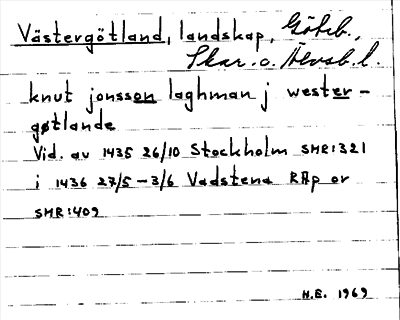 Västergötland, landskap, Göteb.,
Skar. o. Älvsb. l.
knut jonsson laghman j wester-
gøtlande
Vid. av 1435 26/10 Stockholm SMR:321
i 1436 27/5 – 3/6 Vadstena RAp or
SMR:409
H.E. 1969